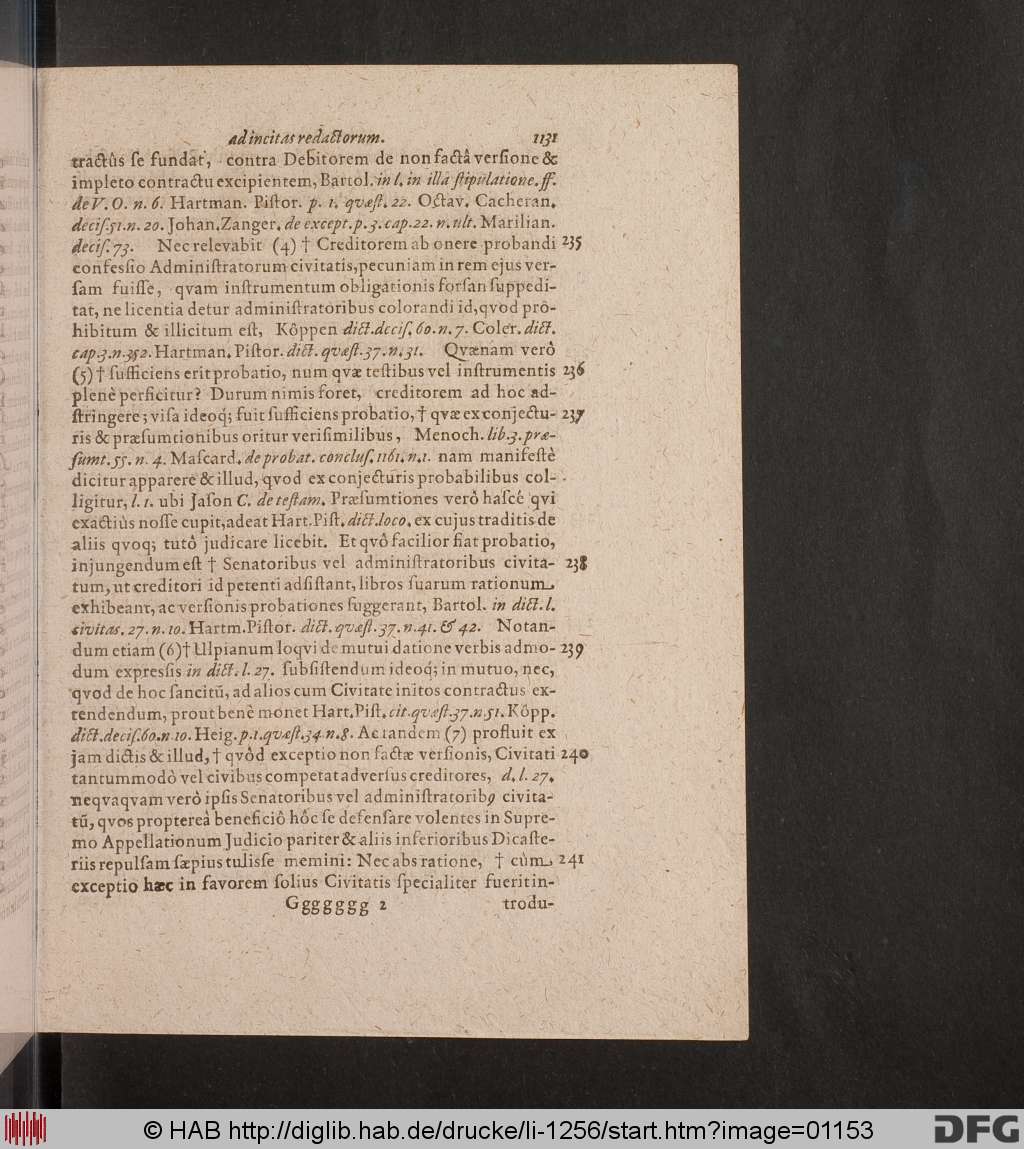 ad incitas redactorum. 1131
tractûs ſe fundat, contra Debitorem de non factâ verſione &
impleto contractu excipientem, Bartol. in l. in illa ſtipulatione. ff.
de V. O. n. 6. Hartman. Piſtor. p. 1. quæſt. 22. Octav. Cacheran.
deciſ. 51. n. 20. Johan. Zanger. de except. p. 3. cap. 22. n. ult. Marilian.
deciſ. 73. Nec relevabit (4) † Creditorem ab onere probandi 235
confeſſio Adminiſtratorum civitatis, pecuniam in rem ejus ver-
ſam fuiſſe, qvam inſtrumentum obligationis forſan ſuppedi-
tat, ne licentia detur adminiſtratoribus colorandi id, qvod prô-
hibitum & illicitum eſt, Kôppen dict. deciſ. 60. n. 7. Coler. dict.
cap. 3. n. 352. Hartman. Piſtor. dict. quæſt. 37. n. 31. Qvænam verò
(5) † ſufficiens erit probatio, num qvæ teſtibus vel inſtrumentis 236
plenè perficitur? Durum nimis foret, creditorem ad hoc ad-
ſtringere; viſa ideoq; fuit ſufficiens probatio, † qvæ ex conjectu- 237
ris & præſumtionibus oritur veriſimilibus, Menoch. lib. 3. præ-
ſumt. 55. n. 4. Maſcard. de probat. concluſ. 1161. n. 1. nam manifeſtè
dicitur apparere & illud, qvod ex conjecturis probabilibus col-
ligitur, l. 1. ubi Jaſon C. de teſtam. Præſumtiones verò haſcè qvi
exactiùs noſſe cupit, adeat Hart. Piſt. dict. loco, ex cujus traditis de
aliis qvoq; tutò judicare licebit. Et qvô facilior fiat probatio,
injungendum eſt † Senatoribus vel adminiſtratoribus civita- 238
tum, ut creditori id petenti adſiſtant, libros ſuarum rationum
exhibeant, ac verſionis probationes ſuggerant, Bartol. in dict. l.
civitas. 27. n. 10. Hartm. Piſtor. dict. qvæſt. 37. n. 41. & 42. Notan-
dum etiam (6) † Ulpianum loqvi de mutui datione verbis admo- 239
dum expreſſis in dict. l. 27. ſubſiſtendum ideoq; in mutuo, nec,
qvod de hoc ſancitũ, ad alios cum Civitate initos contractus ex-
tendendum, prout benè monet Hart. Piſt. cit. quæſt. 37. n. 51. Kôpp.
dict. deciſ. 60. n. 10. Heig. p. 1. quæſt. 34. n. 8. Ac tandem (7) profluit ex
jam dictis & illud, † qvôd exceptio non factæ verſionis, Civitati 240
tantummodò vel civibus competat adverſus creditores, d. l. 27.
neqvaqvam verò ipſis Senatoribus vel adminiſtratoribꝰ civita-
tũ, qvos proptereà beneficiô hôc ſe defenſare volentes in Supre-
mo Appellationum Judicio pariter & aliis inferioribus Dicaſte-
riis repulſam ſæpius tulisſe memini: Nec abs ratione, † cùm 241
exceptio hæc in favorem ſolius Civitatis ſpecialiter fuerit in-
Ggggggg 2 trodu-
© HAB http://diglib.hab.de/drucke/li-1256/start.htm?image=01153
DFG